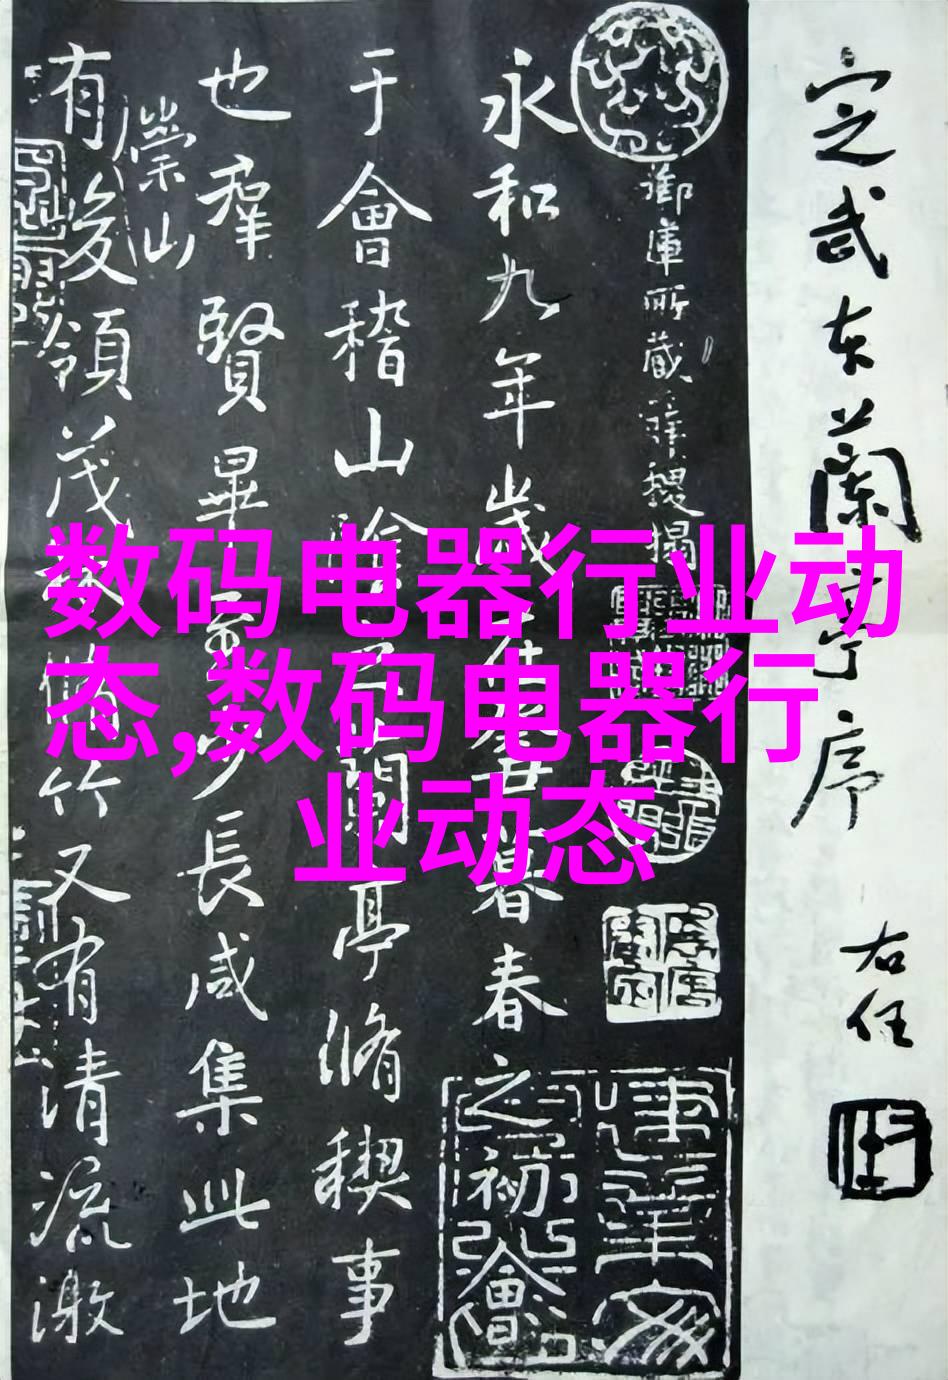 定武本蘭亭序
右任
御庫所藏薛稷搨
永和九年歲在癸丑暮春之初會
于會稽山陰之蘭亭脩禊事
也羣賢畢至少長咸集此地
崇山
有峻領茂林脩竹又有清流激
数码电器行业动
态,数码电器行
业动态